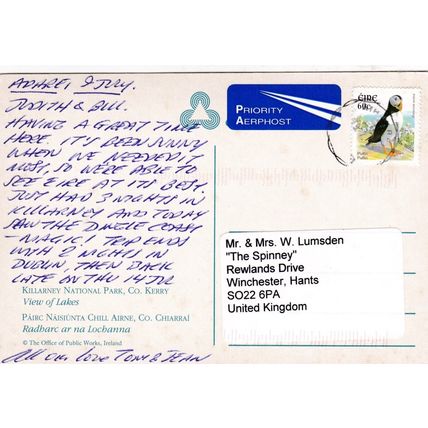 ADARE, 9 JULY.
JUDITH & BILL.
HAVING A GREAT TIME
HERE. IT'S BEEN SUNNY
WHEN WE NEEDED IT
MOST, SO WERE ABLE TO
SEE EIRE AT ITS BEST.
JUST HAD 3 NIGHTS IN
KILLARNEY AND TODAY
SAW THE DINGLE COAST
- MAGIC! TRIP ENDS
WITH 2 NIGHTS IN
DUBLIN, THEN BACK
LATE ON THU 14 JUL
KILLARNEY NATIONAL PARK, CO. KERRY
View of Lakes
PÁIRC NÁISIÚNTA CHILL AIRNE, CO. CHIARRAÍ
Radharc ar na Lochanna
© The Office of Public Works, Ireland
All our love TOM & JEAN
PRIORITY
AERPHOST
ÉIRE
Mr. & Mrs. W. Lumsden
"The Spinney"
Rewlands Drive
Winchester, Hants
SO22 6PA
United Kingdom